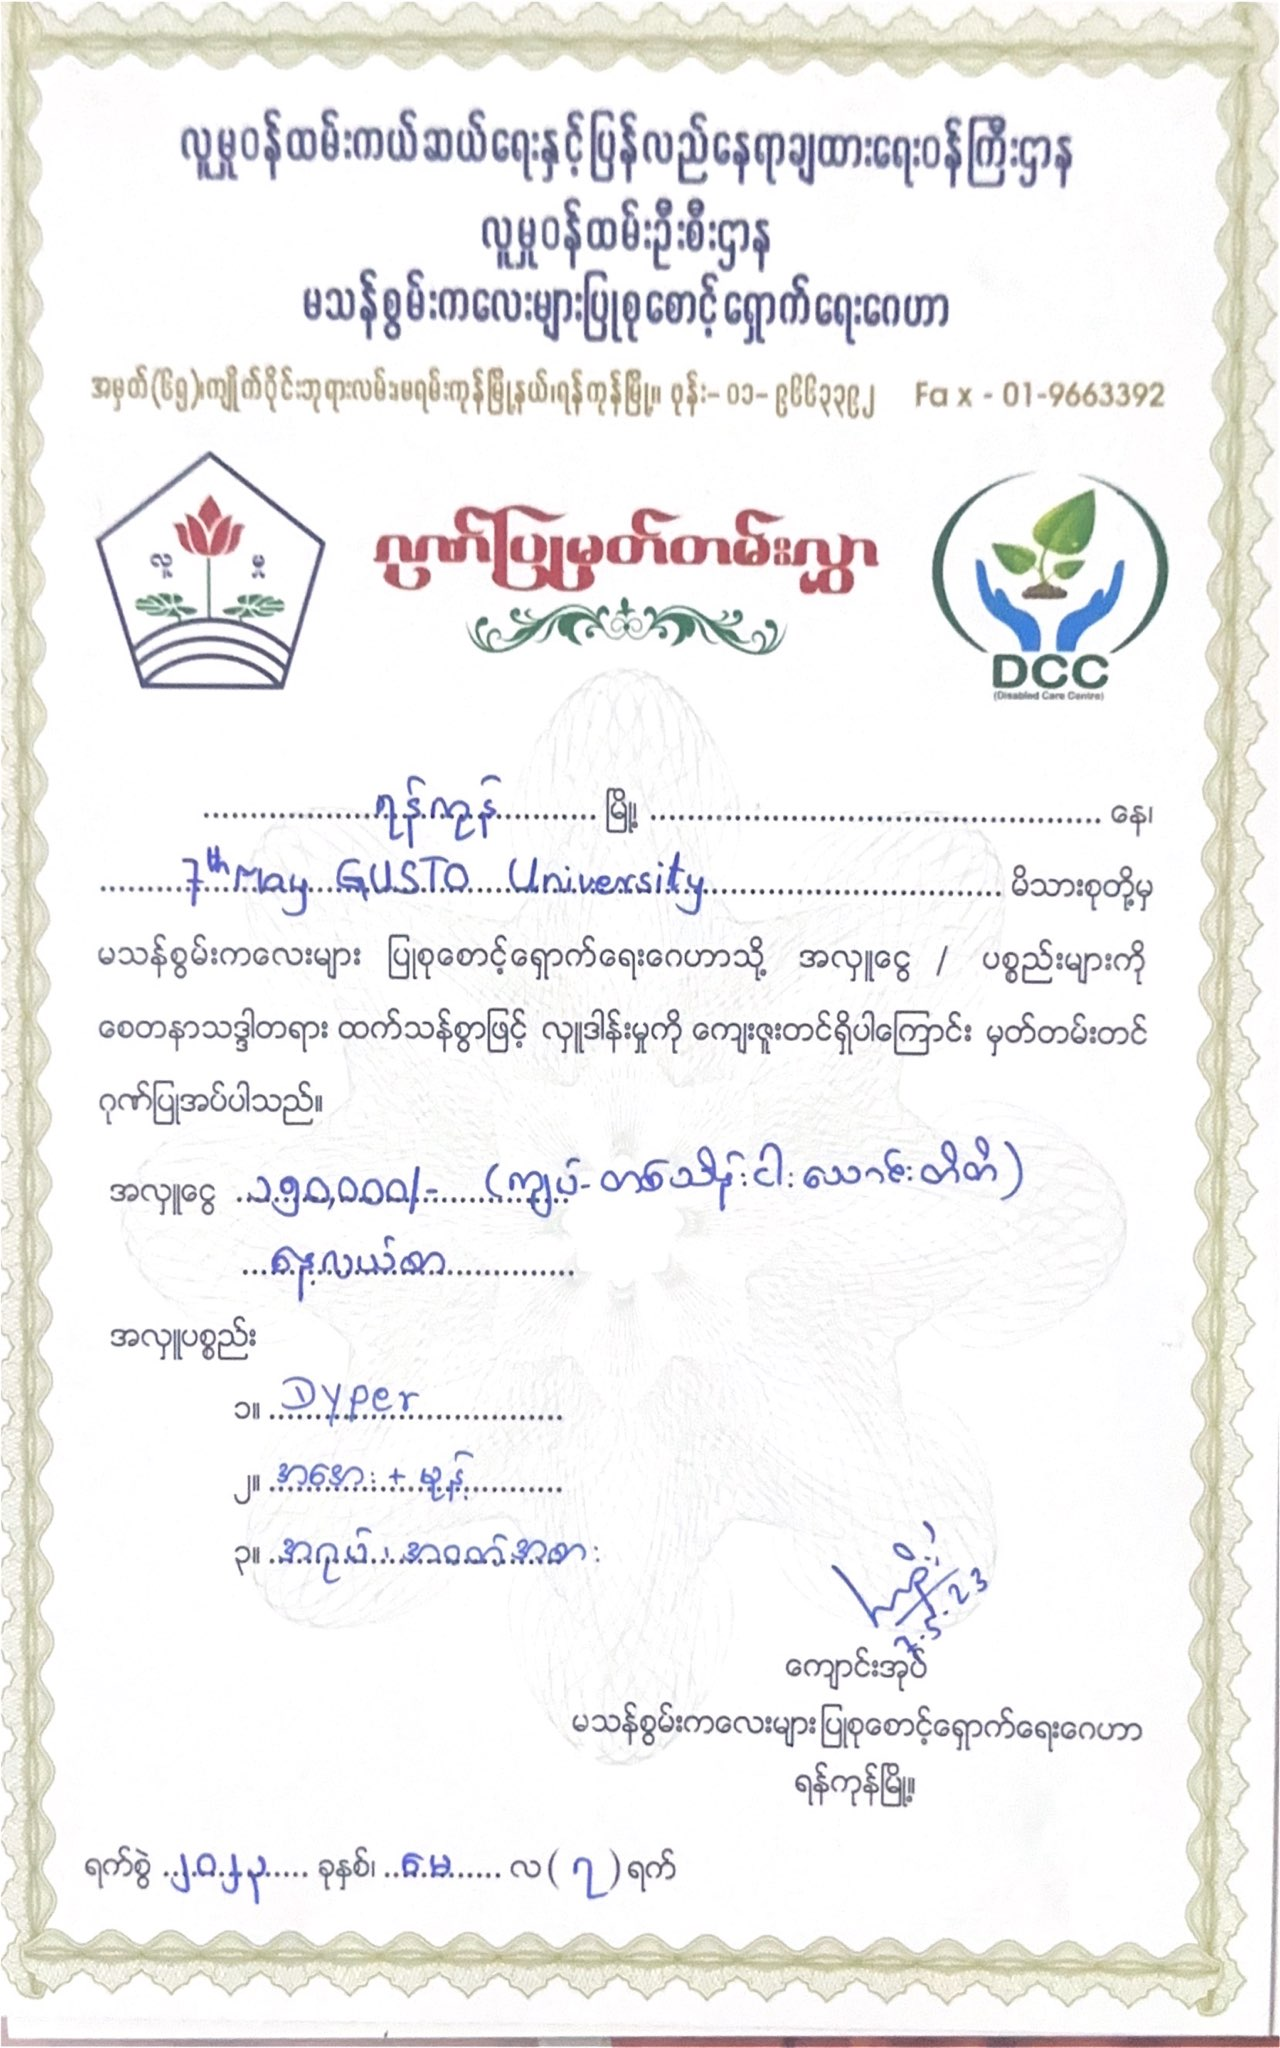 လူမှုဝန်ထမ်းကယ်ဆယ်ရေးနှင့်ပြန်လည်နေရာချထားရေးဝန်ကြီးဌာန
လူမှုဝန်ထမ်းဦးစီးဌာန
မသန်စွမ်းကလေးများပြုစုစောင့်ရှောက်ရေးဂေဟာ
အမှတ်(၆၅)၊ကျိုက်ဝိုင်းဘုရားလမ်း၊မရမ်းကုန်မြို့နယ်၊ရန်ကုန်မြို့။ ဖုန်း- ၀၁- ၉၆၆၃၃၉၂ Fax - 01-9663392
လူ မှု
ဂုဏ်ပြုမှတ်တမ်းလွှာ
DCC
(Disabled Care Centre)
ရန်ကုန် မြို့၊ နေ၊
7th May GUSTO University မိသားစုတို့မှ
မသန်စွမ်းကလေးများ ပြုစုစောင့်ရှောက်ရေးဂေဟာသို့ အလှူငွေ / ပစ္စည်းများကို
စေတနာသဒ္ဒါတရား ထက်သန်စွာဖြင့် လှူဒါန်းမှုကို ကျေးဇူးတင်ရှိပါကြောင်း မှတ်တမ်းတင်
ဂုဏ်ပြုအပ်ပါသည်။
အလှူငွေ ၁၅၀,၀၀၀/- (ကျပ်-တစ်သိန်းငါးသောင်းတိတိ)
နေ့လယ်စာ
အလှူပစ္စည်း
၁။ Dyper
၂။ အအေး + မုန့်
၃။ အရုပ်၊ အဝတ်အစား
7.5.23
ကျောင်းအုပ်
မသန်စွမ်းကလေးများပြုစုစောင့်ရှောက်ရေးဂေဟာ
ရန်ကုန်မြို့။
ရက်စွဲ ၂၀၂၃ ခုနှစ်၊ မေ လ ( ၇ ) ရက်